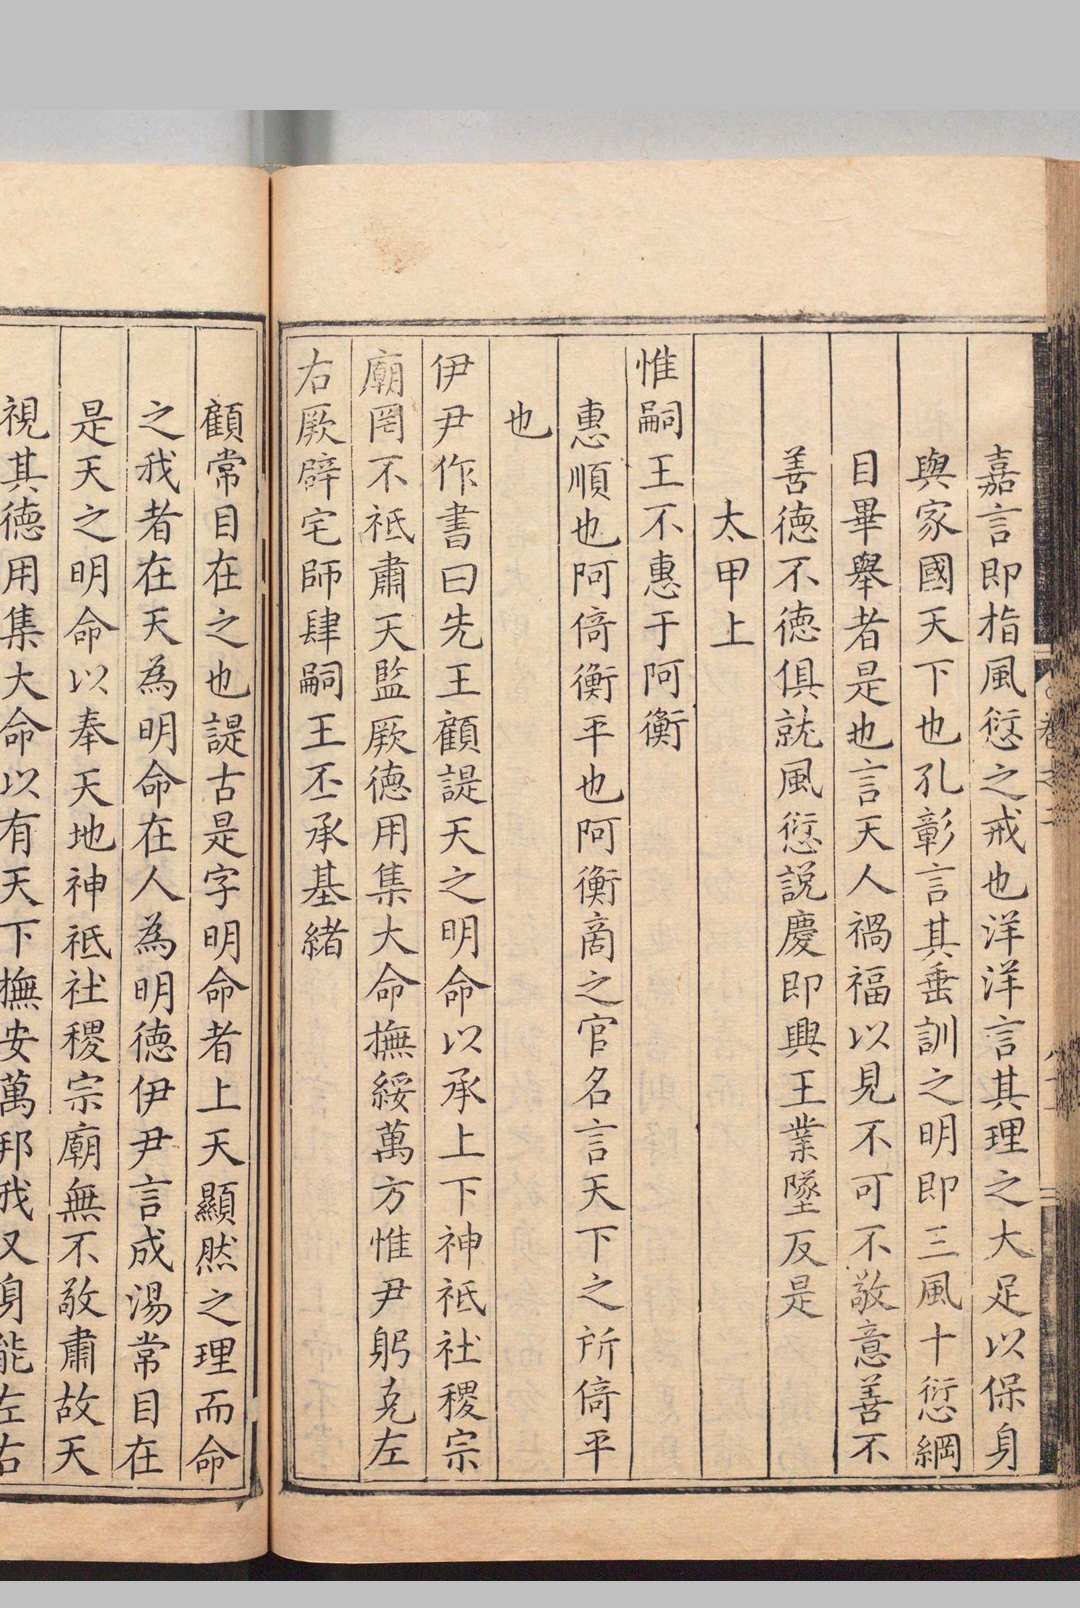 嘉言即指風愆之戒也洋洋言其理之大足以保身
與家國天下也孔彰言其垂訓之明即三風十愆綱
目畢舉者是也言天人禍福以見不可不敬意善不
善德不德俱就風愆説慶即興王業墜反是
太甲上
惟嗣王不惠于阿衡
惠順也阿倚衡平也阿衡啇之官名言天下之所倚平
也
伊尹作書曰先王顧諟天之明命以承上下神祗社稷宗
廟罔不祗肅天監厥德用集大命撫綏萬方惟尹躬克左
右厥辟宅師肆嗣王丕承基緒
顧常目在之也諟古是字明命者上天顯然之理而命
之我者在天為明命在人為明德伊尹言成湯常目在
是天之明命以奉天地神祗社稷宗廟無不敬肅故天
視其德用集大命以有天下撫安萬邦我又身能左右